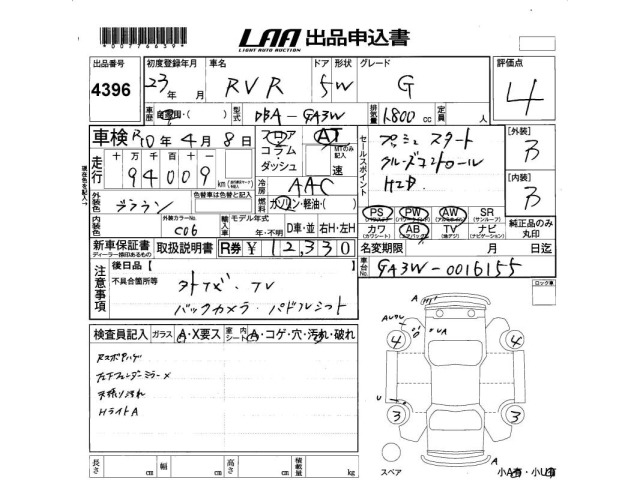 *00776639*
LAA 出品申込書
LIGHT AUTO AUCTION
出品番号 初度登録年月 車名 ドア 形状 グレード 評価点
4396 23年 月 RVR 5W G 4
車歴 自家用・( ) 型式 DBA-GA3W 排気量 1800 cc 定員 人
車検 R10年 4月 8日 フロア コラム・ダッシュ AT MTのみ記入 速
セールスポイント プッシュスタート
クルーズコントロール
HID
[外装] B
[内装] B
走行 十 万 千 百 十 一
94009 km
現在色を記入
冷房 AAC
外装色 ブラウン 色替車は色替と記入
燃料 ガソリン・軽油・( )
PS PW AW SR (サンルーフ)
カワ (パワーシート) AB (エアバッグ) TV (地デジ) ナビ (ナビゲーション)
純正品のみ丸印
内装色 外装カラーNo. C06 輸入車 モデル年式 年・不明 D車・並 右H・左H
新車保証書 ディーラー捺印あるもの 取扱説明書 R券 ¥12,330 名変期限 月 日迄
車台No. GA3W-0016155
ロック車
注意事項 後日品【
不具合箇所等 外ナビ・TV
バックカメラ・パドルシフト
検査員記入 ガラス A・X要ス 室内シート A・コゲ・穴・汚れ・破れ
Rスポイラハゲ
左下フェンダーミラー×
天張り汚れ
HライトA
A
A
UA
4 4
U
3 3
A
スペア
小A有・小U有
長さ cm 幅 cm 高さ cm 積載量 kg